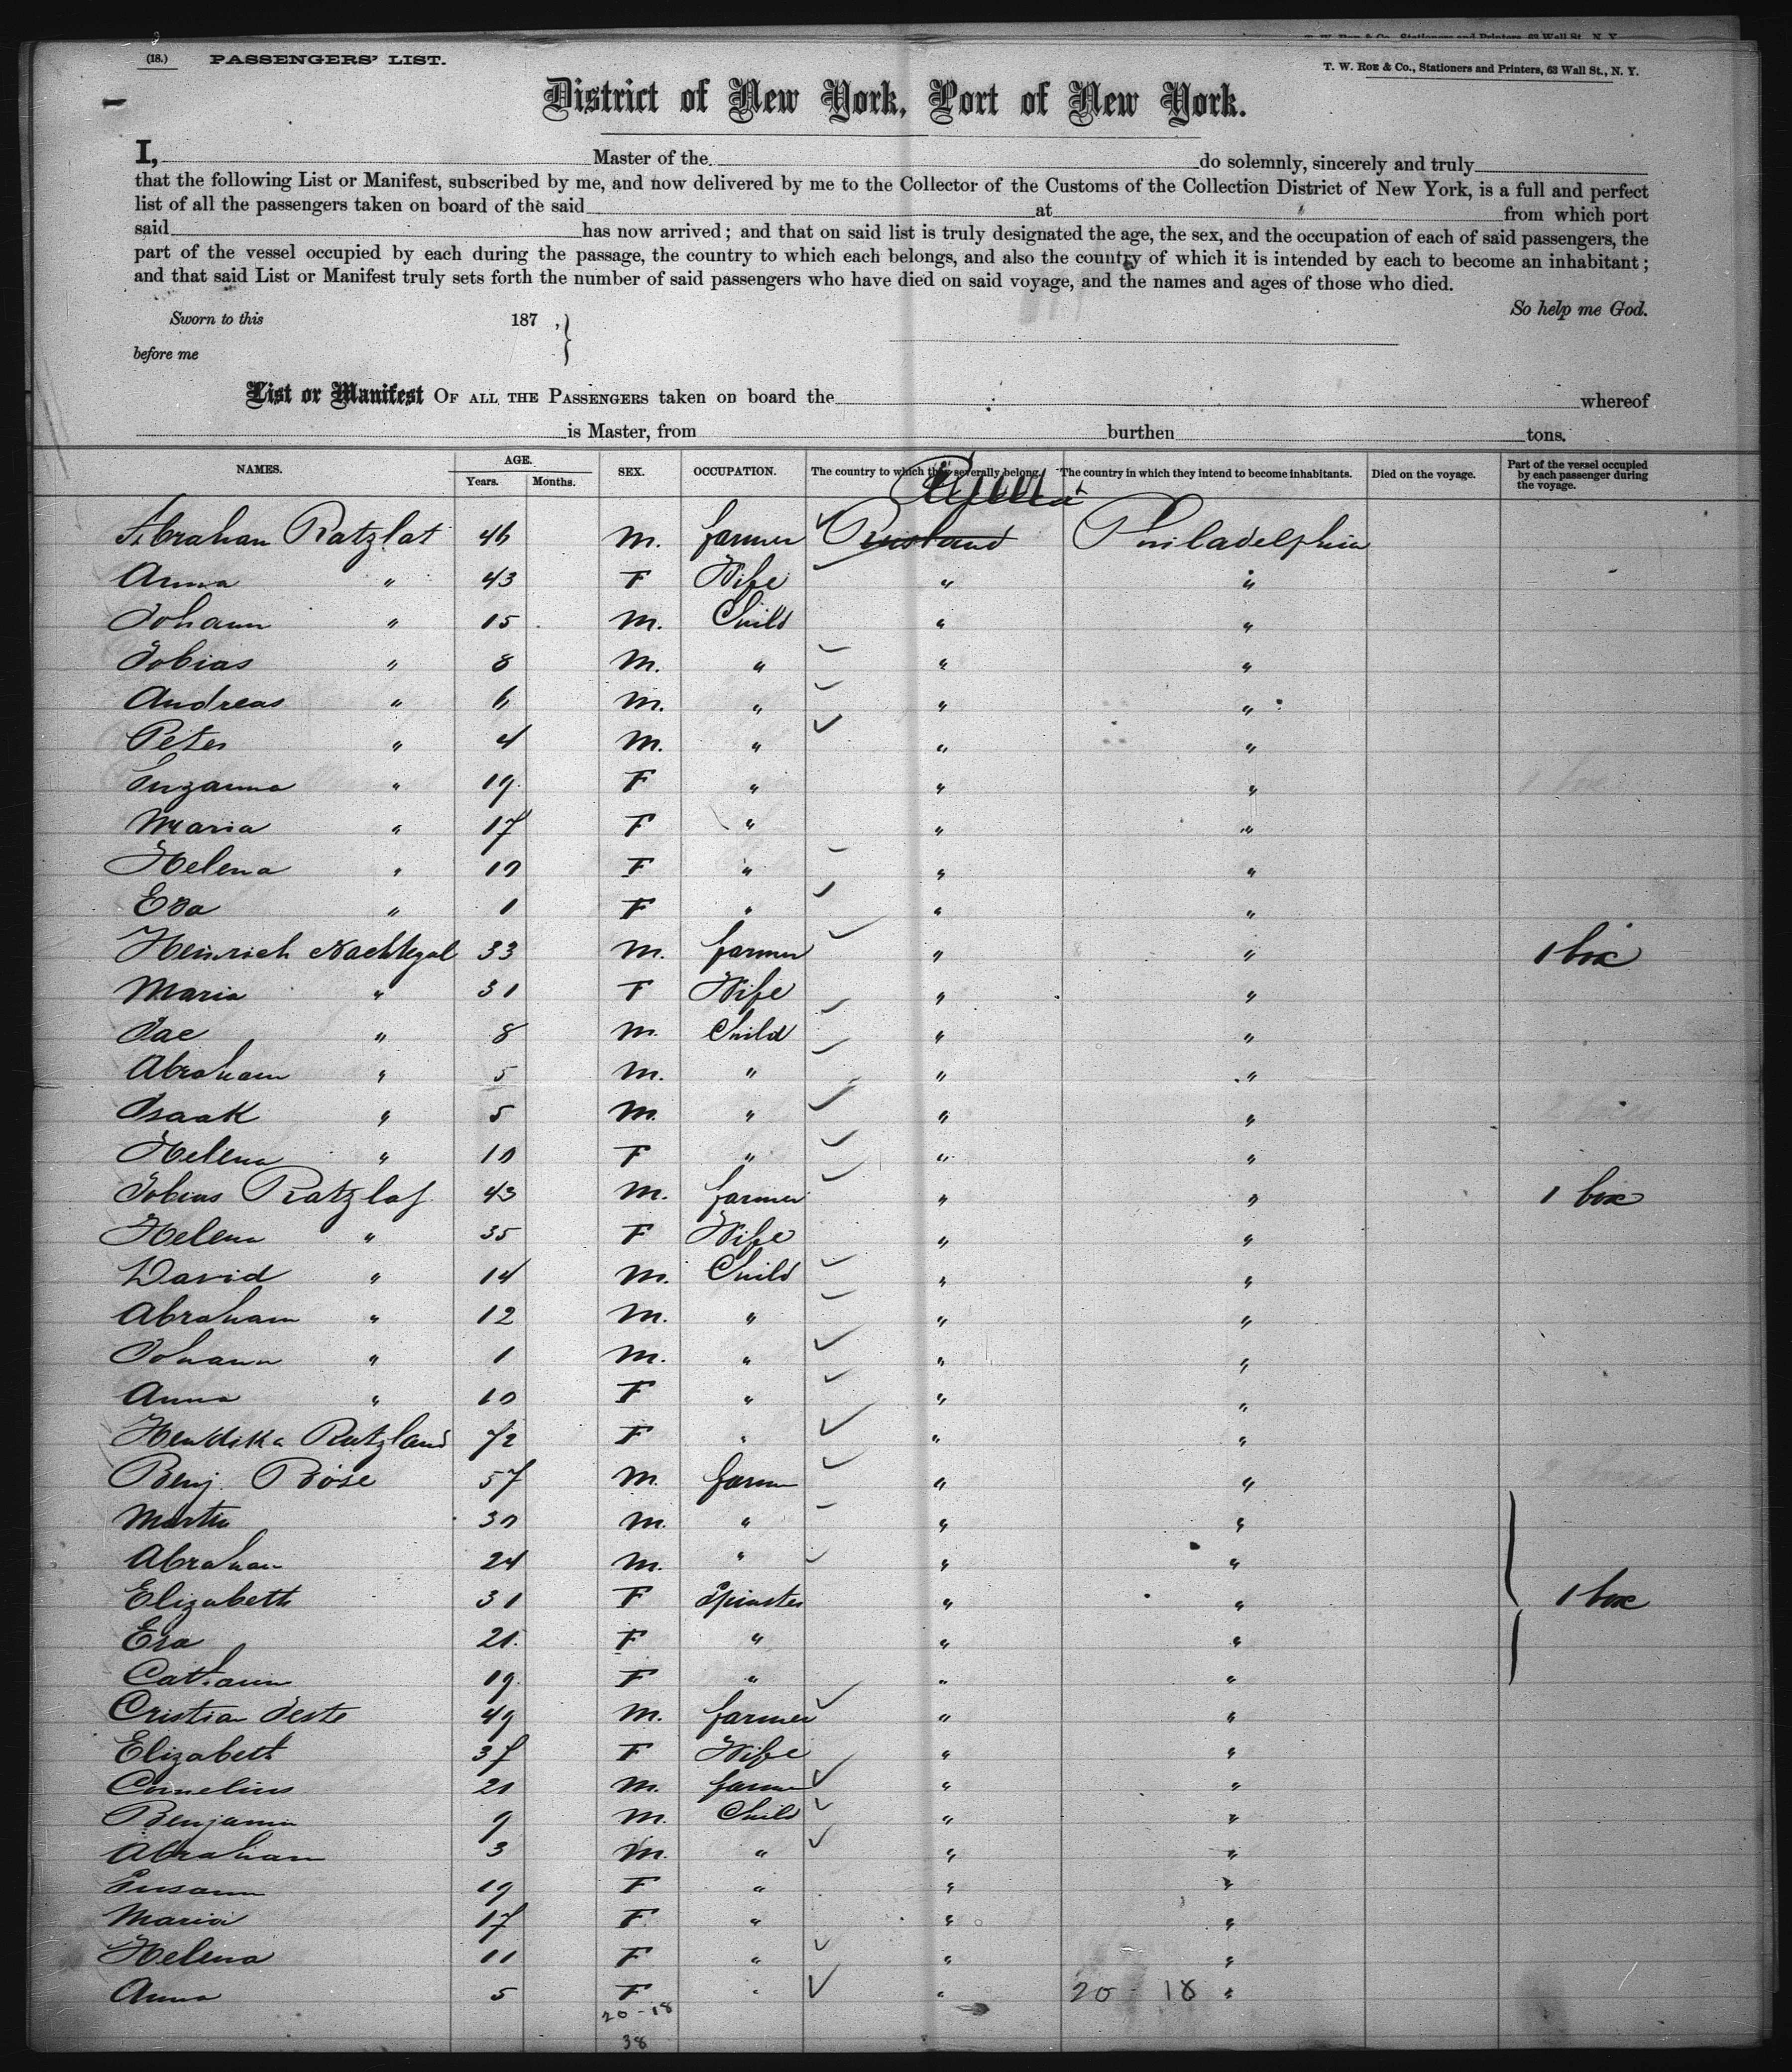 (18.) PASSENGERS' LIST.
T. W. ROE & Co., Stationers and Printers, 63 Wall St., N. Y.
District of New York, Port of New York.
I, Master of the do solemnly, sincerely and truly
that the following List or Manifest, subscribed by me, and now delivered by me to the Collector of the Customs of the Collection District of New York, is a full and perfect
list of all the passengers taken on board of the said at from which port
said has now arrived; and that on said list is truly designated the age, the sex, and the occupation of each of said passengers, the
part of the vessel occupied by each during the passage, the country to which each belongs, and also the country of which it is intended by each to become an inhabitant;
and that said List or Manifest truly sets forth the number of said passengers who have died on said voyage, and the names and ages of those who died.
So help me God.
Sworn to this 187 ,
before me
List or Manifest OF ALL THE PASSENGERS taken on board the whereof
is Master, from burthen tons.
NAMES. AGE. Years. Months. SEX. OCCUPATION. The country to which they severally belong. The country in which they intend to become inhabitants. Died on the voyage. Part of the vessel occupied by each passenger during the voyage.
Abraham Ratzlat 46 M. farmer Russland Philadelphia
Anna " 43 F Wife " "
Johann " 15 M. Child " "
Tobias " 8 M. " " "
Andreas " 6 M. " " "
Peter " 4 M. " " "
Suzanna " 19 F " " "
Maria " 17 F " " "
Helena " 10 F " " "
Eva " 1 F " " "
Heinrich Nachtegal 33 M. farmer " " 1 box
Maria " 31 F Wife " "
Jac " 8 M. Child " "
Abraham " 5 M. " " "
Isaak " 5 M. " " "
Helena " 10 F " " "
Tobias Ratzlaf 43 M. farmer " " 1 box
Helena " 35 F Wife " "
David " 14 M. Child " "
Abraham " 12 M. " " "
Johann " 1 M. " " "
Anna " 10 F " " "
Ratzland 72 F " " "
Benj. Böse 57 M. farm " "
Martin 30 M. " " "
Abraham 24 M. " " "
Elizabeth 31 F Spinster " " 1 box
Eva 21 F " " "
Catharin 19 F " " "
Cristian Jeste 49 M. farmer " "
Elizabeth 37 F Wife " "
Cornelius 21 M. farmer " "
Benjamin 9 M. Child " "
Abraham 3 M. " " "
Susann 19 F " " "
Maria 17 F " " "
Helena 11 F " " "
Anna 5 F " " 20 - 18 "
20 - 18
38